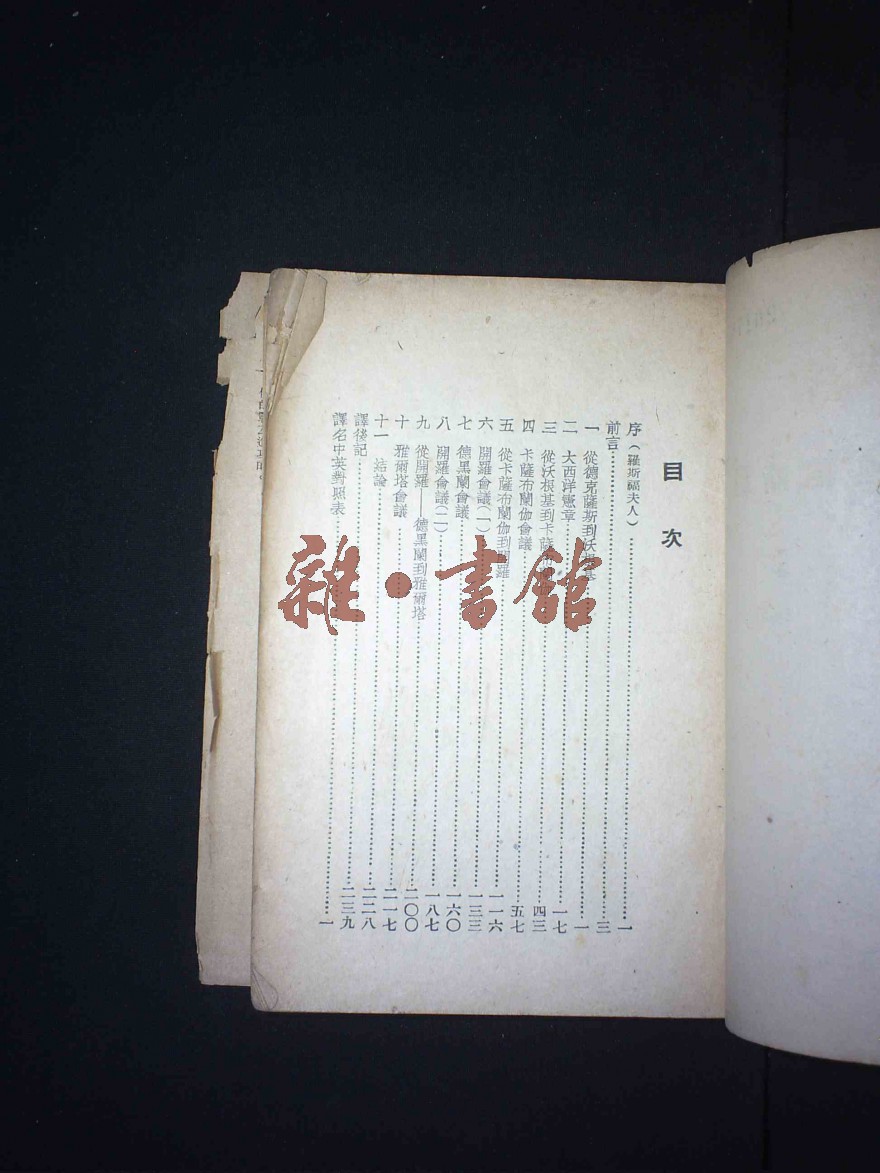 目次
序(羅斯福夫人)……一
前言……三
一 從德克薩斯到沃根基……一
二 大西洋憲章……一七
三 從沃根基到卡薩……四三
四 卡薩布蘭伽會議……五七
五 從卡薩布蘭伽到開羅……一一六
六 開羅會議(一)……一三三
七 德黑蘭會議……一六〇
八 開羅會議(二)……一八七
九 從開羅——德黑蘭到雅爾塔……二〇〇
十 雅爾塔會議……二一七
十一 結論……二二八
譯後記……二三九
譯名中英對照表……一
雜·書館